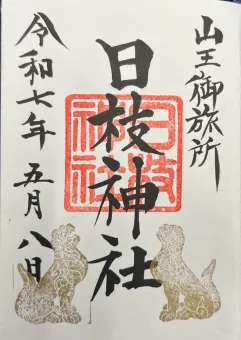 山王御旅所
日枝神社
日枝神社
令和七年 五月 八日